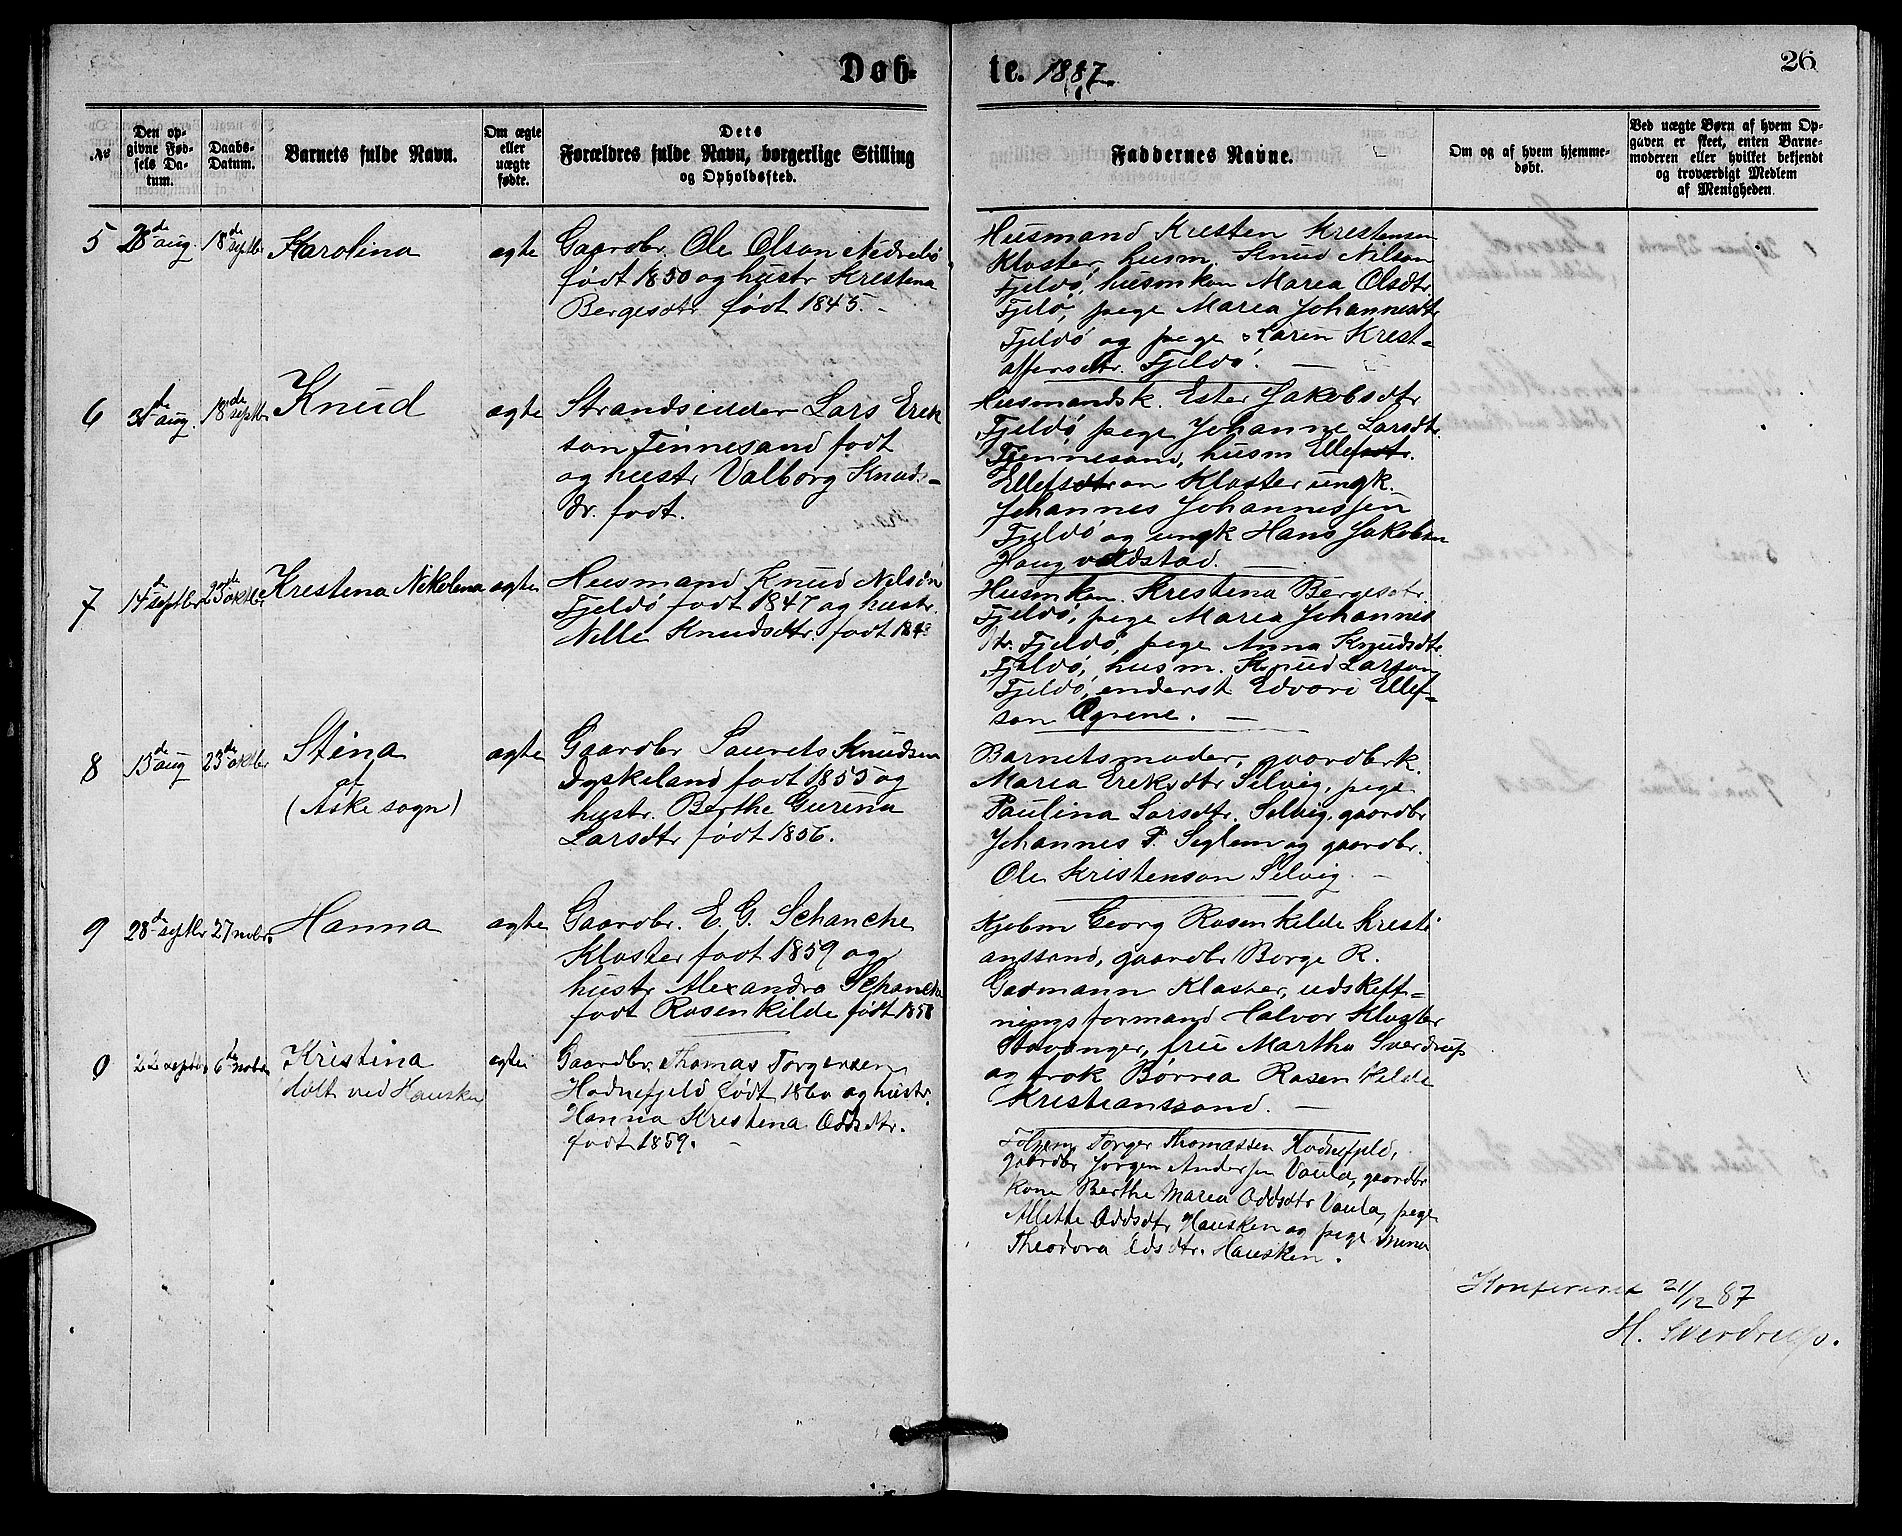 Døb-
te. 1887.
26
No
Den op-
givne Fød-
sels Da-
tum.
Daabs-
Datum.
Barnets fulde Navn.
Om ægte
eller
uægte
fødte.
Dets
Forældres fulde Navn, borgerlige Stilling
og Opholdssted.
Faddernes Navne.
Om og af hvem hjemme-
døbt.
Ved uægte Børn af hvem Op-
gaven er skeet, enten Barne-
moderen eller hvilket bekjendt
og troværdigt Medlem
af Menigheden.
5 28de aug. 18de septbr Karolina agte
Gaardbr. Ole Olson Nedrebø
født 1850 og hustr Krestena
Bergesdtr født 1845. -
Husmand Kresten Krestensen
Kloster, husm. Knud Nilson
Fjeldø, husmkon Marea Olsdtr
Fjelø, pege Marea Johannesdtr
Fjeldø og pege Karen Krest-
offersdtr. Fjeldø. -
6 31de aug. 18de septbr Knud agte
Strandsidder Lars Erek
son Finnesand født
og hustr Valborg Knuds-
dr. født.
Husmandsk. Ester Jakobsdtr
Fjeldø pege Johanne Larsdtr.
Finnesand, husm Ellefsdtr.
Ellefsdtr on Kloster ungk.
Johannes Johannessen
Fjeldø og ungk Hans Jakobsen
Haugvaldstad.
7 14de septbr 23de oktbr Krestena Nekolena agte
Husmand Knud Nelson
Fjeldø født 1847 og hustr.
Nille Knudsdtr. født 184
Husmkon. Krestena Bergesdtr.
Fjeldø, pege Marea Johannes
dtr. Fjeldø, pege Anna Knudsdtr.
Fjeldø, husm. Knud Larson
Fjeldø, enderst Edvard Ellef-
son Øgrene. -
8 13de aug 23de oktbr Stina agte
af
(Aske sogn)
Gaardbr Laurets Knudsen
Dyskeland født 1853 og
hustr. Berthe Gurina
Larsdtr født 1856.
Barnetsmoder, gaardbrk.
Marea Ereksdtr Selvig, pege
Paulina Larsdtr. Selvig, gaardbr
Johannes P. Seglem og gaardbr.
Ole Kristenson Selvig. -
9 28de septbr 27 nvbr. Hanna agte
Gaardbr. E. G. Schanche
Kloster født 1859 og
hustr Alexandra Schanche
født Rosenkilde født 1858
Kjøbm Georg Rosenkilde Kresti
anssand, gaardbr Børge R.
Garmann Kloster, udskeft-
nings formand Halvor Kloster
Stavanger, frue Martha Sverdrup
og frøk Børrea Rosenkilde
Kristianssand. -
0 22 septbr 6de novbr Kristina agte
døbt ved Hausken
Gaardbr. Thomas Torgersen
Hodnefjeld født 1860 og hustr.
Hanna Krestena Oddsdtr.
født 1859. -
Torger Thomassen Hodnefjeld,
gaardbr Jørgen Andersen Vaula, gaardbr
kone Berthe Marea Oddsdtr Vaula, pege
Alette Oddsdtr Hausken og pege
Theodora Odsdtr. Hausken.
Konfereret 21/12 87
H. Sverdrup.